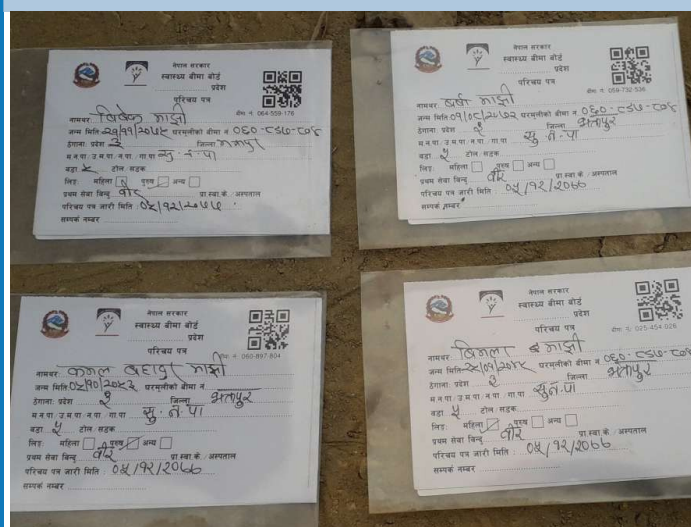 नेपाल सरकार
स्वास्थ्य बीमा बोर्ड
प्रदेश
परिचय पत्र
बीमा नं. 064-559-176
नामथर विवेक माझी
जन्म मिति घरमुलीको बीमा नं ०६०-८९७-८०४
ठेगाना: प्रदेश ३ जिल्ला भक्तपुर
म.न.पा. उ.म.पा. न.पा. गा.पा. सु. न. पा
वडा ५ टोल सडक
लिङ्ग: महिला पुरुष अन्य
प्रथम सेवा बिन्दु वीर प्रा.स्वा.के. /अस्पताल
परिचय पत्र जारी मिति : ०५/१२/२०७७
सम्पर्क नम्बर
नेपाल सरकार
स्वास्थ्य बीमा बोर्ड
प्रदेश
परिचय पत्र
बीमा नं. 059-732-536
नामथर वर्षा माझी
जन्म मिति ०१/०८/२०७२ घरमुलीको बीमा नं ०६०-८९७-८०४
ठेगाना: प्रदेश ३ जिल्ला भक्तपुर
म.न.पा. उ.म.पा. न.पा. गा.पा. सु. न. पा
वडा ५ टोल सडक
लिङ्ग: महिला पुरुष अन्य
प्रथम सेवा बिन्दु वीर प्रा.स्वा.के. /अस्पताल
परिचय पत्र जारी मिति : ०५/१२/२०७७
सम्पर्क नम्बर
नेपाल सरकार
स्वास्थ्य बीमा बोर्ड
प्रदेश
परिचय पत्र
बीमा नं. 060-897-804
नामथर कमल बहादुर माझी
जन्म मिति घरमुलीको बीमा नं
ठेगाना: प्रदेश ३ जिल्ला भक्तपुर
म.न.पा. उ.म.पा. न.पा. गा.पा. सु. न. पा
वडा ५ टोल सडक
लिङ्ग: महिला पुरुष अन्य
प्रथम सेवा बिन्दु वीर प्रा.स्वा.के. /अस्पताल
परिचय पत्र जारी मिति : ०५/१२/२०७७
सम्पर्क नम्बर
नेपाल सरकार
स्वास्थ्य बीमा बोर्ड
प्रदेश
परिचय पत्र
बीमा नं. 025-454-026
नामथर विमला माझी
जन्म मिति घरमुलीको बीमा नं ०६०-८९७-८०४
ठेगाना: प्रदेश ३ जिल्ला भक्तपुर
म.न.पा. उ.म.पा. न.पा. गा.पा. सु. न. पा
वडा ५ टोल सडक
लिङ्ग: महिला पुरुष अन्य
प्रथम सेवा बिन्दु वीर प्रा.स्वा.के. /अस्पताल
परिचय पत्र जारी मिति : ०५/१२/२०७७
सम्पर्क नम्बर